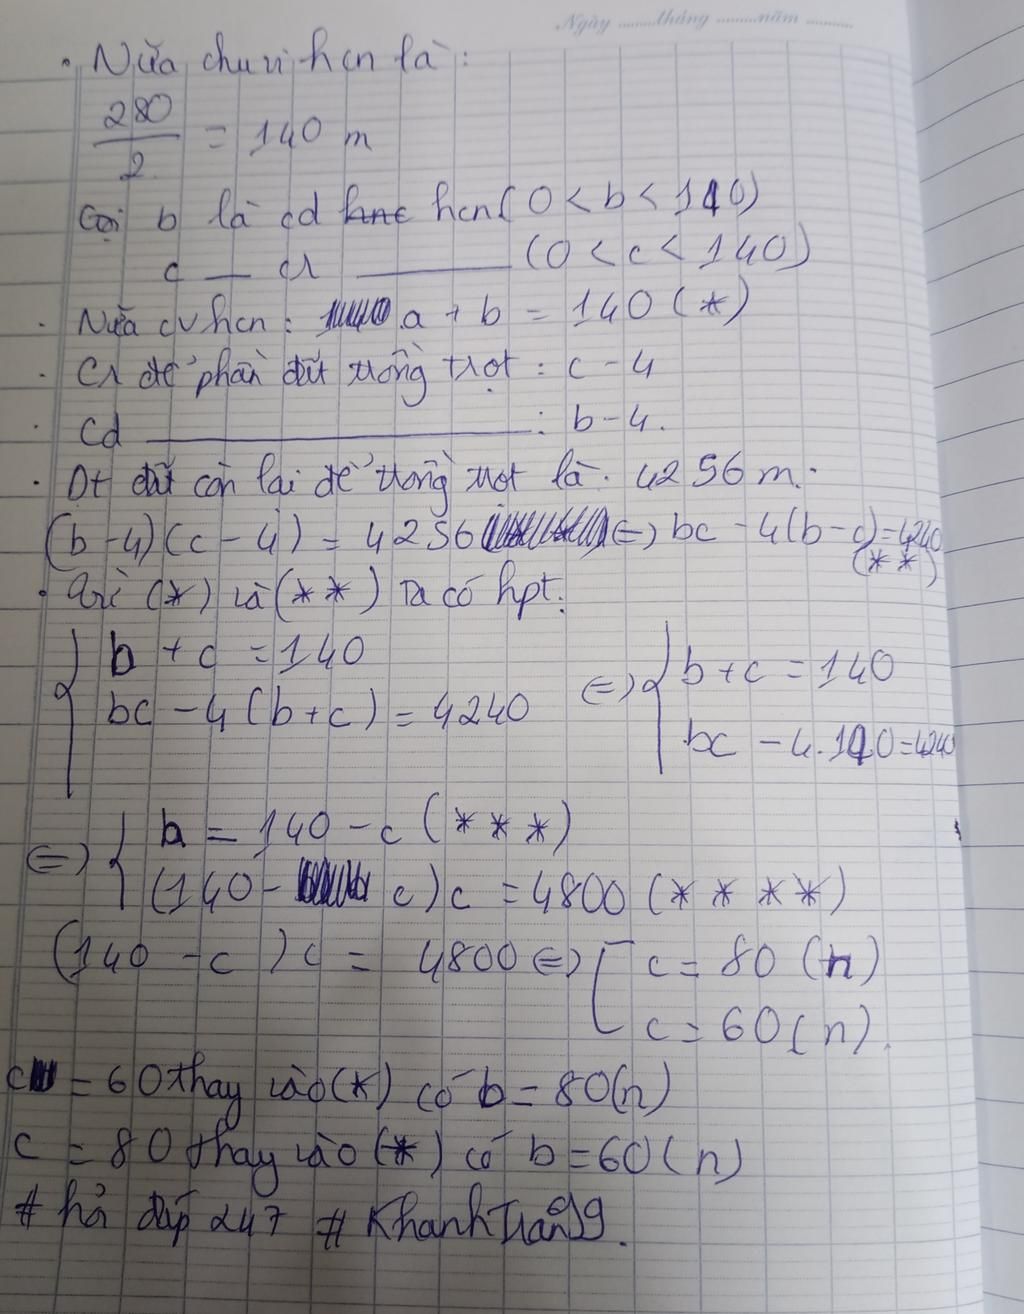 Ngày ........tháng ........năm ..........
• Nửa chu vi hcn là:
280
2
= 140 m
Gọi b là cd hcn (0 < b < 140)
c — cr ——— (0 < c < 140)
• Nửa cv hcn: a + b = 140 (*)
• Cr để phần đất trồng trọt : c - 4
• Cd ——————— : b - 4.
• Dt đất còn lại để trồng trọt là: 4256 m.
(b - 4)(c - 4) = 4256 ⇔ bc - 4(b - c) = 4240
(**)
• Từ (*) và (**) Ta có hpt:
{ b + c = 140
bc - 4(b + c) = 4240
⇔ { b + c = 140
bc - 4.140 = 4240
⇔ { b = 140 - c (***)
(140 - c)c = 4800 (****)
(140 - c)c = 4800 ⇔ [ c = 80 (n)
c = 60 (n).
c = 60 thay vào (*) có b = 80 (n)
c = 80 thay vào (*) có b = 60 (n)
# hỏi đáp 247 # KhanhTrang99.